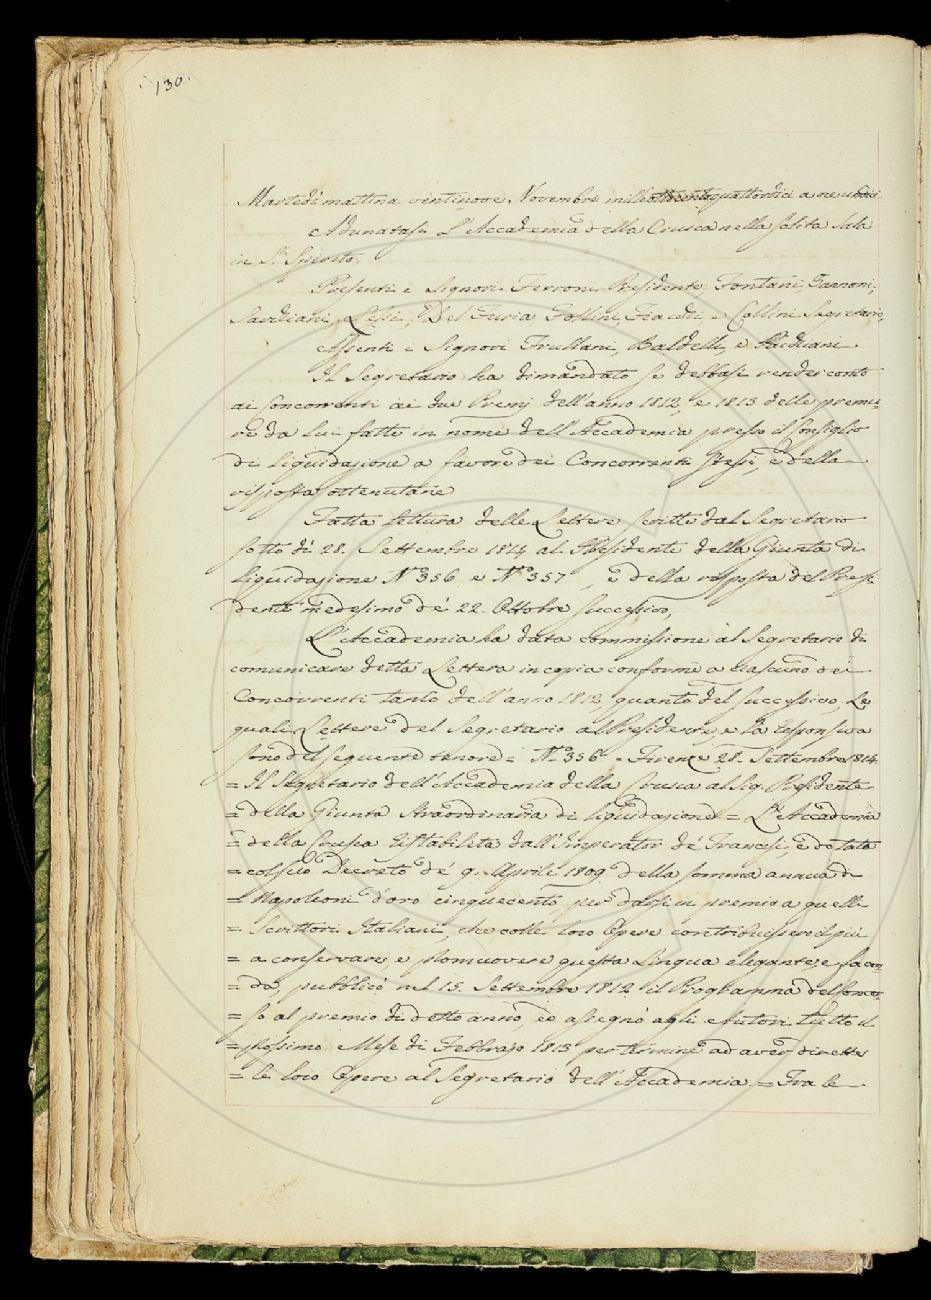 130.
Martedì mattina ventinove Novembre milleottocentoquattordici a ore undici
Adunatasi l'Accademia della Crusca nella solita Sala
in S. Spirito
Presenti i Signori Ferroni Presidente Fontani, Zannoni,
Sarchiani, Lessi, Del Furia Follini, Fiacchi, e Collini Segretario,
Assenti i Signori Frullani, Baldelli, e Pacchiani
Il Segretario ha dimandato se debbasi render conto
ai Concorrenti ai due Premj dell'anno 1812, e 1813 delle premu=
re da lui fatte in nome dell'Accademia presso il Consiglio
di liquidazione a favore dei Concorrenti stessi, e della
risposta ottenutane
Fatta lettura delle Lettere scritte dal Segretario
sotto dì 28. Settembre 1814 al Presidente della Giunta di
liquidazione N.º 356 e N.º 357, e della risposta del Presi=
dente medesimo de' 22. Ottobre successivo,
L'Accademia ha data commissione al Segretario di
comunicare detta Lettera in copia conforme a ciascuno dei
Concorrenti tanto dell'anno 1812, quanto del successivo, Le
quali Lettere del Segretario al Presidente, e la responsiva
sono del seguente tenore = N.º 356 - Firenze 28. Settembre 1814
= Il Segretario dell'Accademia della Crusca al Sig. Presidente
= della Giunta Straordinaria di liquidazione = L'Accademia
= della Crusca ristabilita dall'Imperator de' Francesi, e dotata
= col suo Decreto de' 9. Aprile 1809 della somma annua di
= Napoleoni d'oro cinquecento per darsi in premio a quelli
= Scrittori Italiani, che colle loro Opere contribuissero di più
= a conservare, e promuovere questa Lingua elegante, e facon=
= da, pubblicò nel 15. Settembre 1812 il Programma del Concor=
= so al premio di detto anno, ed assegnò agli Autori tutto il
= prossimo Mese di Febbrajo 1813 per termine ad aver dirette
= le loro Opere al Segretario dell'Accademia = Fra le